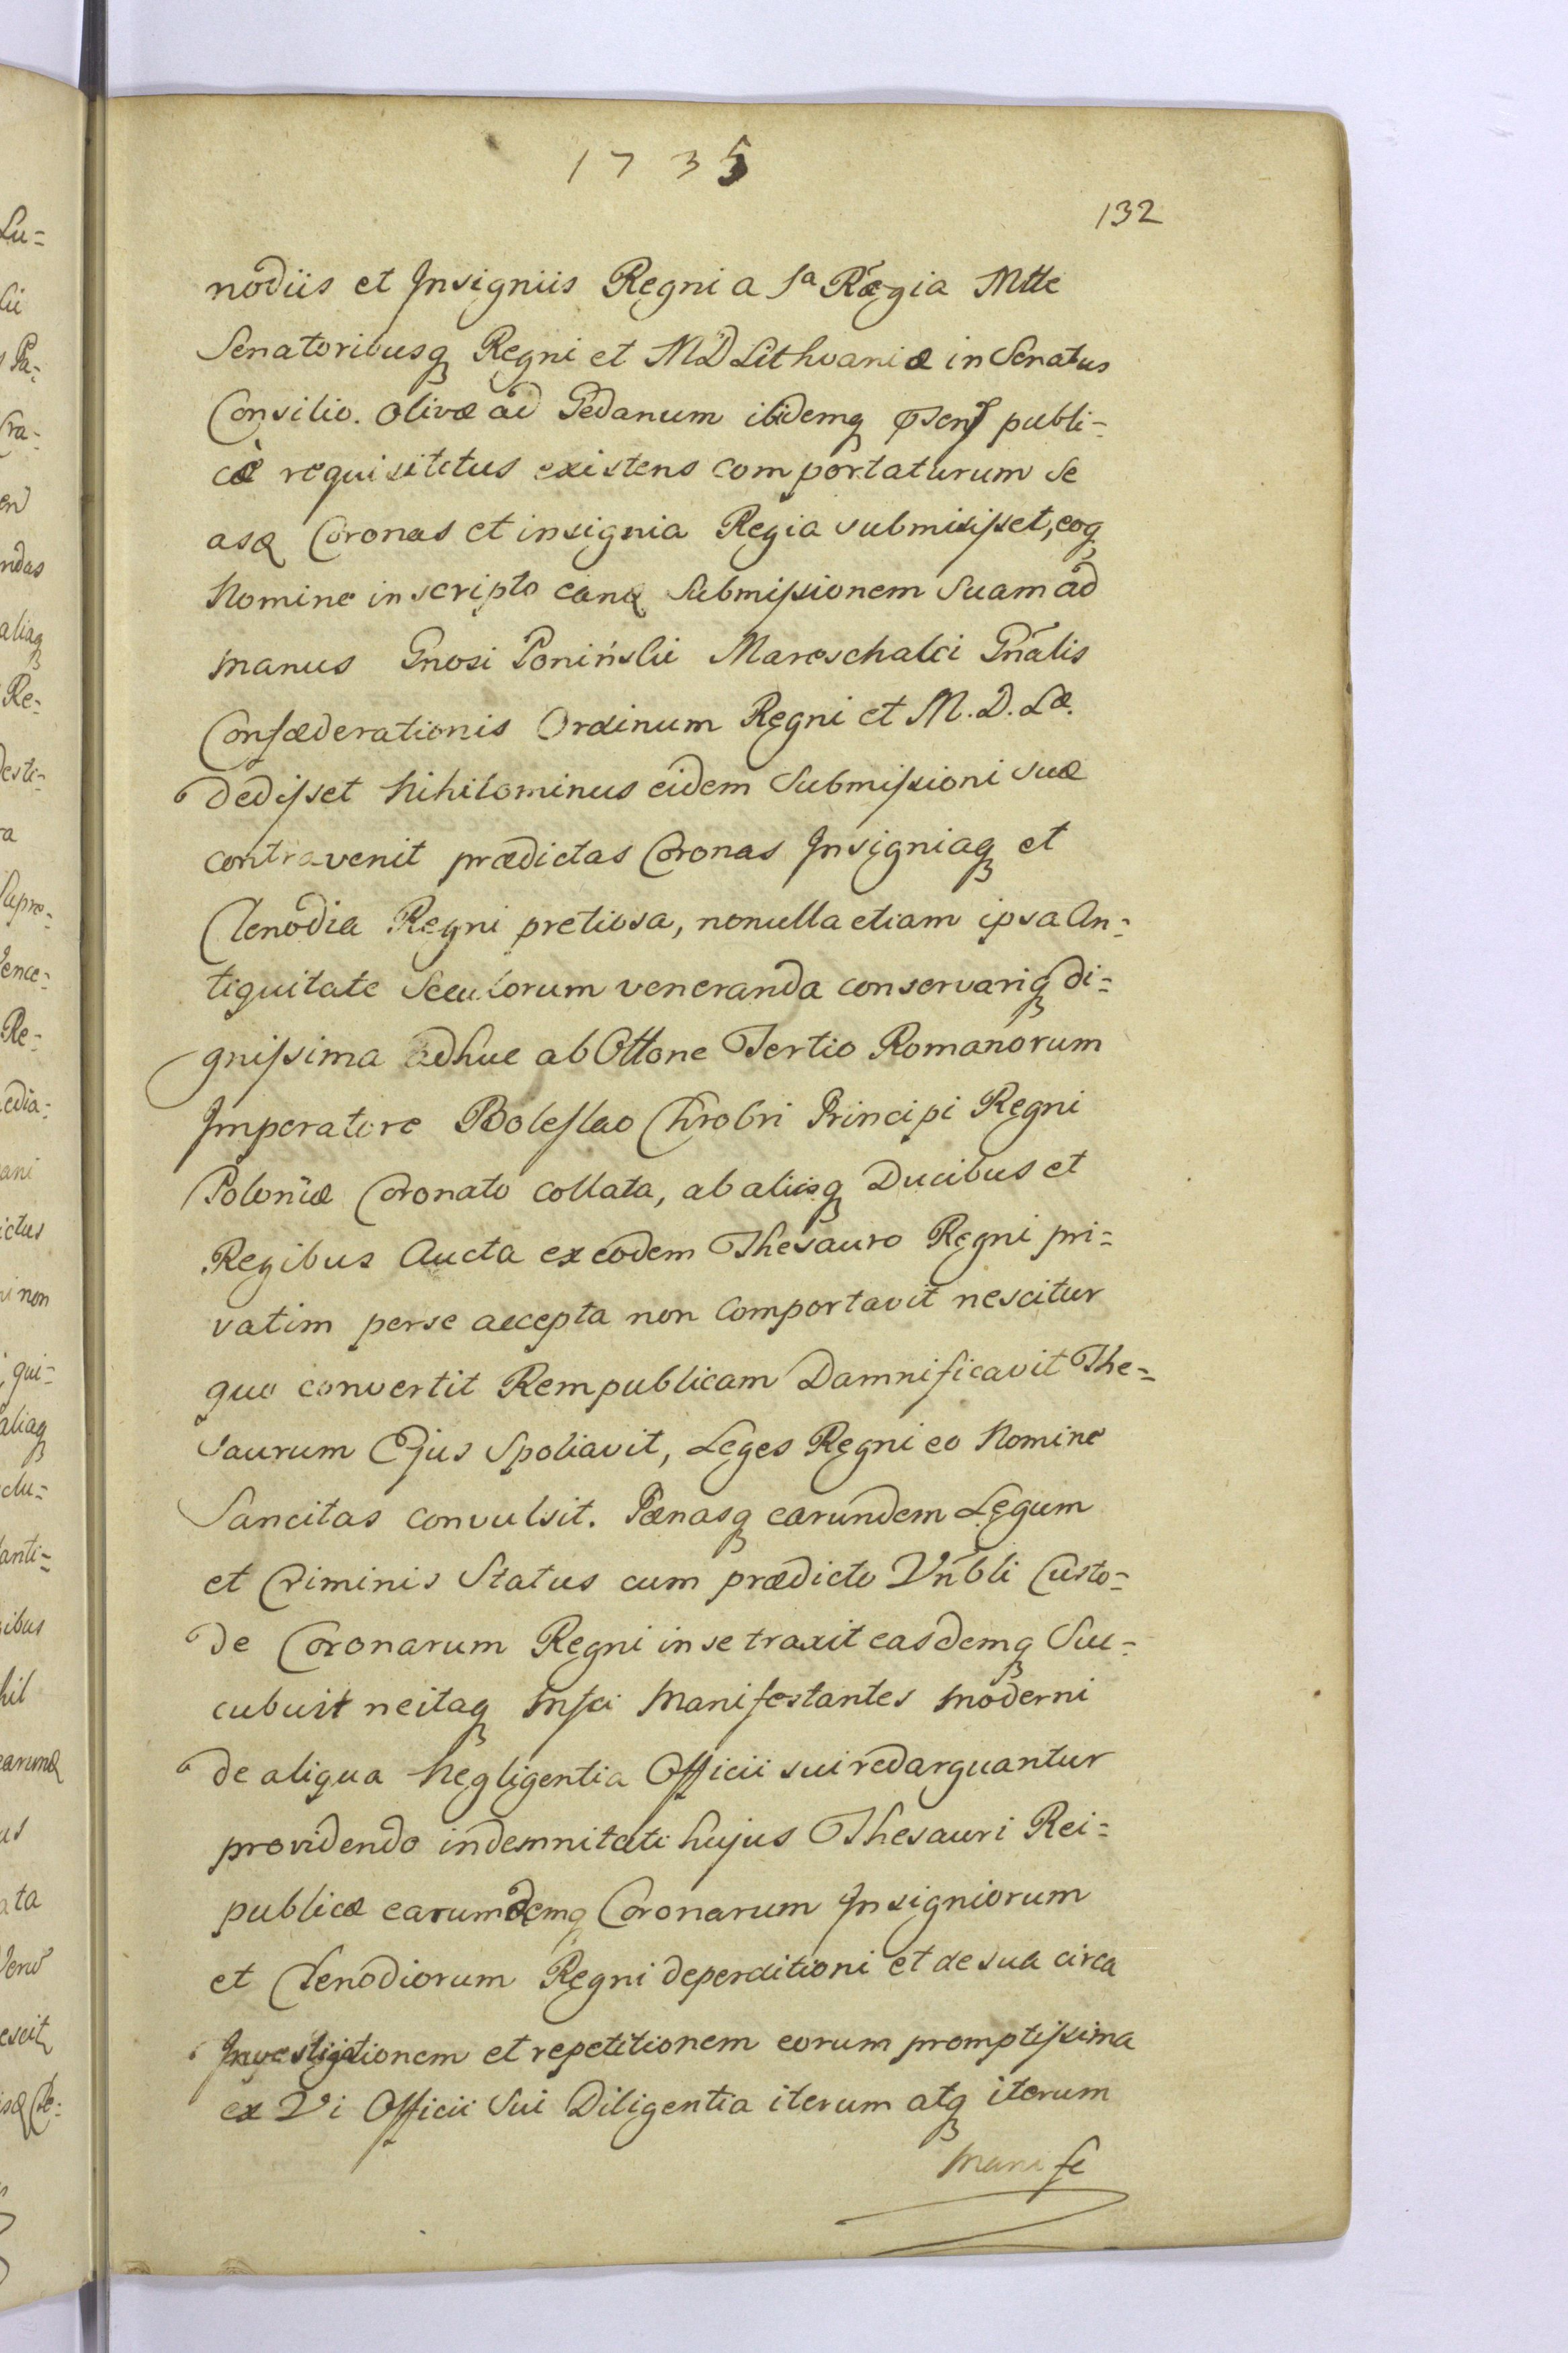 1735
132
nodiis et Insigniis Regni a Sa Regia Mtte
Senatoribusq Regni et MD Lithvaniæ in Senatus
Consilio. Olivæ ad Gedanum ibidemq publi=
cè requisitetus existens comportaturum se
Coronas et insignia Regia submisisset, eoq
Nomine in scripto Submissionem Suam ad
manus Gnosi Ponińskii Mareschalci Gnalis
Confæderationis Ordinum Regni et M. D. Læ.
dedisset Nihilominus eidem Submissioni suæ
contravenit prædictas Coronas Insigniaq et
Clenodia Regni pretiosa, nonulla etiam ipsa An=
tiquitate Seculorum veneranda conservariq di=
gnissima adhuc ab Ottone Tertio Romanorum
Imperatore Boleslao Chrobri Principi Regni
Poloniæ Coronato collata, ab aliisq Ducibus et
Regibus Aucta ex eodem Thesauro Regni pri=
vatim per se accepta non comportavit nescitur
quo convertit Rempublicam Damnificavit The=
saurum Ejus Spoliavit, Leges Regni eo Nomine
Sancitas convulsit. Pænasq earundem Legum
et Criminis Status cum prædicto Vnbli Custo=
de Coronarum Regni in se traxit easdemq Suc=
cubuit ne itaq Manifestantes moderni
de aliqua Negligentia Officii sui redarguantur
providendo indemnitati hujus Thesauri Rei=
publicæ earumdemq Coronarum Insigniorum
et Clenodiorum Regni deperditioni et de sua circa
Investigationem et repetitionem eorum promptissima
ex Vi Officii Sui Diligentia iterum atq iterum
manife